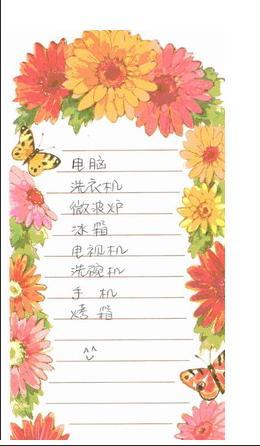 电脑
洗衣机
微波炉
冰箱
电视机
洗碗机
手机
烤箱
^^